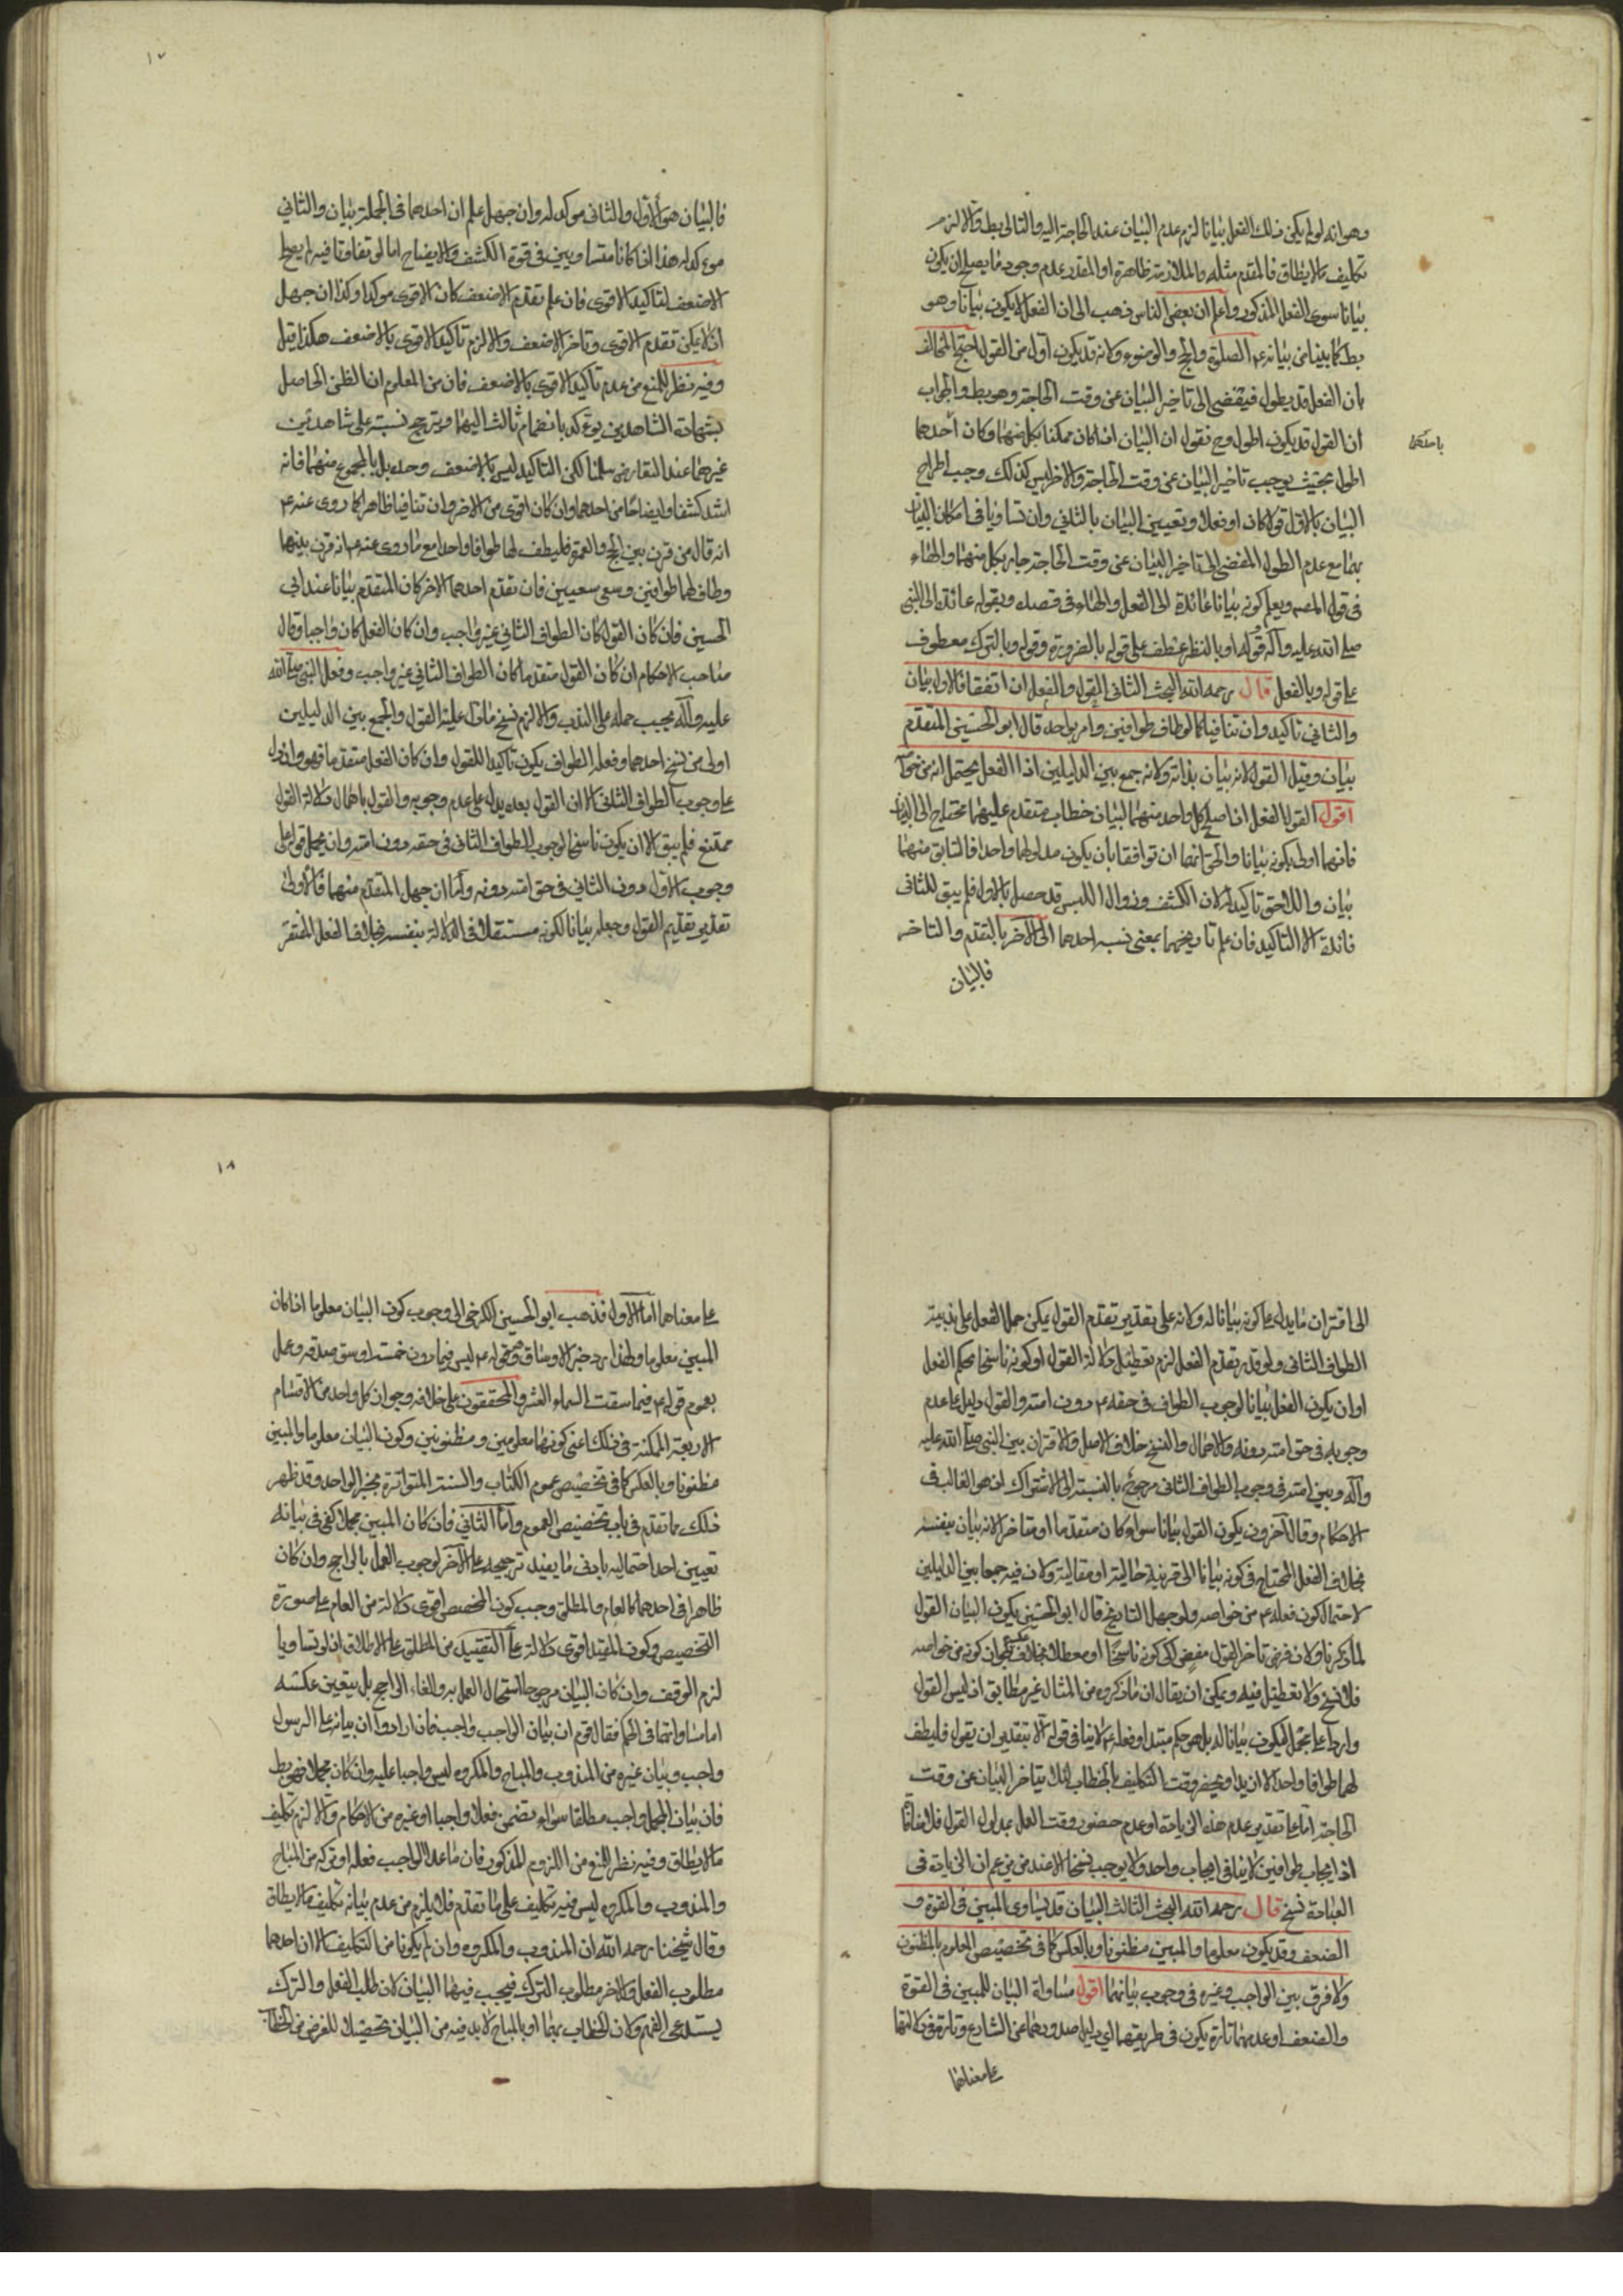 وهو انه لو لم يكن ذلك الفعل بيانا لزم عدم البيان عند الحاجة اليه والتالى بط والا لزم
تكليف ما لا يطاق فالمقدم مثله والملازمة ظاهرة اذ المقدر عدم وجود ما يصلح ان يكون
بيانا سوى الفعل المذكور واعلم ان بعض الناس ذهب الى ان الفعل لا يكون بيانا وهو
بط لما بينا من بيانه ع م الصلوة والحج والوضوء ولانه قد يكون ادل من القول احتج المخالف
بان الفعل قد يطول فيفضى الى تاخير البيان عن وقت الحاجة وهو بط والجواب
ان القول قد يكون اطول وح نقول ان البيان اذا كان ممكنا بكل منهما وكان احدهما
باحدهما
اطول بحيث يوجب تاخير البيان عن وقت الحاجة والاخر ليس كذلك وجب اطراح
البيان بالاول قولا كان او فعلا وتعيين البيان بالثانى وان تساويا فى امكان البيان
بهما مع عدم الطول المفضى الى تاخير البيان عن وقت الحاجة جاز بكل منهما والهاء
فى قول المصـ ويعلم كونه بيانا عائدة الى الفعل والهاء فى قصده وبقوله عائدة الى النبى
صلى الله عليه وآله قوله او بالنظر عطف على قوله بالضرورة وقوله وبالترك معطوف
على قوله وبالفعل قال رحمه الله البحث الثانى القول والفعل ان اتفقا فالاول بيان
والثانى تاكيد وان تنافيا كما لو طاف طوافين وامر بواحد قال ابو الحسين المتقدم
بيان وقيل القول لانه بيان بذاته ولانه جمع بين الدليلين اذ الفعل يحتمل انه من خواصه
اقول القول والفعل اذا صلح كل واحد منهما لبيان خطاب متقدم عليهما محتاج الى البيان
فايهما اولى بكونه بيانا والحق انهما ان توافقا بان يكون مدلولهما واحدا فالسابق منهما
بيان واللاحق تاكيد له لان الكشف وزوال اللبس قد حصل بالاول فلم يبق للثانى
فائدة الا التاكيد فان علم تاريخهما بمعنى نسبة احدهما الى الآخر بالتقدم والتاخر
فالبيان
١٧
فالبيان هو الاول والثانى موكد له وان جهل علم ان احدهما فى الجملة بيان والثانى
موءكد له هذا اذا كانا متساويين فى قوة الكشف والايضاح اما لو تفاوتا فيه لم يصلح
الاضعف لتاكيد الاقوى فان علم تقدم الاضعف كان الاقوى موكدا وكذا ان جهل
اذ لا يمكن تقدم الاقوى وتاخر الاضعف والا لزم تاكيد الاقوى بالاضعف هكذا قيل
وفيه نظر للمنع من عدم تاكيد الاقوى بالاضعف فان من المعلوم ان الظن الحاصل
بشهادة الشاهدين يوءكد بانضمام ثالث اليهما ويترجح نسبته على شاهدين
غيرهما عند التعارض سلمنا لكن التاكيد ليس بالاضعف وحده بل بالمجموع منهما فانه
اشد كشفا وايضاحا من احدهما وان كان اقوى من الاخر وان تنافيا ظاهرا كما روى عنه ع م
انه قال من قرن بين الحج والعمرة فليطف لهما طوافا واحدا مع ما روى عنه ع م انه قرن بينهما
وطاف لهما طوافين وسعى سعيين فان تقدم احدهما الاخر كان المتقدم بيانا عند ابى
الحسين فان كان القول كان الطواف الثانى غير واجب وان كان الفعل كان واجبا وقال
صاحب الاحكام ان كان القول متقدما كان الطواف الثانى غير واجب وفعل النبى صلى الله
عليه وآله يجب حمله على الندب والا لزم نسخ ما دل عليه القول والجمع بين الدليلين
اولى من نسخ احدهما وفعله الطواف يكون تاكيدا للقول وان كان الفعل متقدما فهو وان دل
على وجوب الطواف الثانى الا ان القول بعده يدل على عدم وجوبه والقول باهمال دلالة القول
ممتنع فلم يبق الا ان يكون ناسخا لوجوب الطواف الثانى فى حقه دون امته وان يحمل قوله على
وجوب الاول دون الثانى فى حق امته دونه واما ان جهل المتقدم منهما فالاولى
تقدير تقديم القول وجعله بيانا لكونه مستقلا فى الدلالة بنفسه بخلاف الفعل المفتقر
الى اقتران ما يدل على كونه بيانا له ولانه على تقدير تقدم القول يمكن حمل الفعل على ندبية
الطواف الثانى ولو قدر تقدم الفعل لزم تعطيل دلالة القول او كونه ناسخا لحكم الفعل
او ان يكون الفعل بيانا لوجوب الطواف فى حقه ع م دون امته والقول دليل على عدم
وجوبه فى حق امته دونه والاهمال والنسخ خلاف الاصل والاقتران بين النبى صلى الله عليه
وآله وبين امته فى وجوب الطواف الثانى مرجوح بالنسبة الى الاشتراك اذ هو الغالب فى
الاحكام وقال آخرون يكون القول بيانا سواء كان متقدما او متاخرا لانه بيان بنفسه
بخلاف الفعل المحتاج فى كونه بيانا الى قرينة حالية او مقالية ولان فيه جمعا بين الدليلين
لاحتمال كون فعله ع م من خواصه ولو جهل التاريخ قال ابو الحسين يكون البيان القول
لما ذكرنا ولان فرض تاخر القول مفض الى كونه ناسخا او معطلا بخلاف عكسه لجواز كونه من خواصه
فلا نسخ ولا تعطيل فيه ويمكن ان يقال ان ما ذكروه من المثال غير مطابق اذ ليس القول
واردا على مجمل ليكون بيانا له بل هو حكم مبتدا وفعله ع م لا ينافى قوله الا بتقدير ان يقول فليطف
لهما طوافا واحدا لا ازيد او يحضر وقت التكليف بالخطاب لئلا يتاخر البيان عن وقت
الحاجة اما على تقدير عدم هذه الزيادة او عدم حضور وقت العمل بمدلول القول فلا منافاة
اذ ايجاب طوافين لا ينافى ايجاب واحد ولا يوجب نسخا الا عند من زعم ان الزيادة فى
العبادة نسخ قال رحمه الله البحث الثالث البيان قد يساوى المبين فى القوة و
الضعف وقد يكون معلوما والمبين مظنونا وبالعكس كما فى تخصيص المعلوم بالمظنون
ولا فرق بين الواجب وغيره فى وجوب بيانهما اقول مساواة البيان للمبين فى القوة
والضعف او عدمهما تارة يكون فى طريقهما اى دليل صدورهما عن الشارع وتارة فى دلالتهما
على معناهما
١٨
على معناهما اما الاول فذهب ابو الحسين الكرخى الى وجوب كون البيان معلوما اذا كان
المبين معلوما ولهذا رد خبر الاوساق وهو قوله ع م ليس فيما دون خمسة اوسق صدقة وعمل
بعموم قوله ع م فيما سقت السماء العشر والمحققون على خلافه وجواز كل واحد من الاقسام
الاربعة الممكنة فى ذلك اعنى كونهما معلومين ومظنونين وكون البيان معلوما والمبين
مظنونا وبالعكس كما فى تخصيص عموم الكتاب والسنة المتواترة بخبر الواحد وقد ظهر
ذلك مما تقدم فى باب تخصيص العموم واما الثانى فان كان المبين مجملا كفى فى بيانه
تعيين احد احتماليه بادنى ما يفيد ترجيحه على الآخر لوجوب العمل بالراجح وان كان
ظاهرا فى احدهما كالعام والمطلق وجب كون المخصص اقوى دلالة من العام على صورة
التخصيص وكون المقيد اقوى دلالة على التقييد من المطلق على الاطلاق اذ لو تساويا
لزم الوقف وان كان البيان مرجوحا استحال العمل به والغاء الراجح بل يتعين عكسه
اما مساواتهما فى الحكم فقال قوم ان بيان الواجب واجب فان ارادوا ان بيانه على الرسول
واجب وبيان غيره من المندوب والمباح والمكروه ليس واجبا عليه وان كان مجملا فهو بط
فان بيان المجمل واجب مطلقا سواء تضمن فعلا واجبا او غيره من الاحكام والا لزم تكليف
ما لا يطاق وفيه نظر للمنع من اللزوم المذكور فان ما عدا الواجب فعله او تركه من المباح
والمندوب والمكروه ليس فيه تكليف على ما تقدم فلا يلزم من عدم بيانه تكليف ما لا يطاق
وقال شيخنا رحمه الله ان المندوب والمكروه وان لم يكونا من التكليف الا ان احدهما
مطلوب الفعل والاخر مطلوب الترك فيجب فيهما البيان لان طلب الفعل والترك
يستدعى الفهم ولان الخطاب بهما او بالمباح لا بد فيه من البيان تحصيلا للغرض من الخطاب